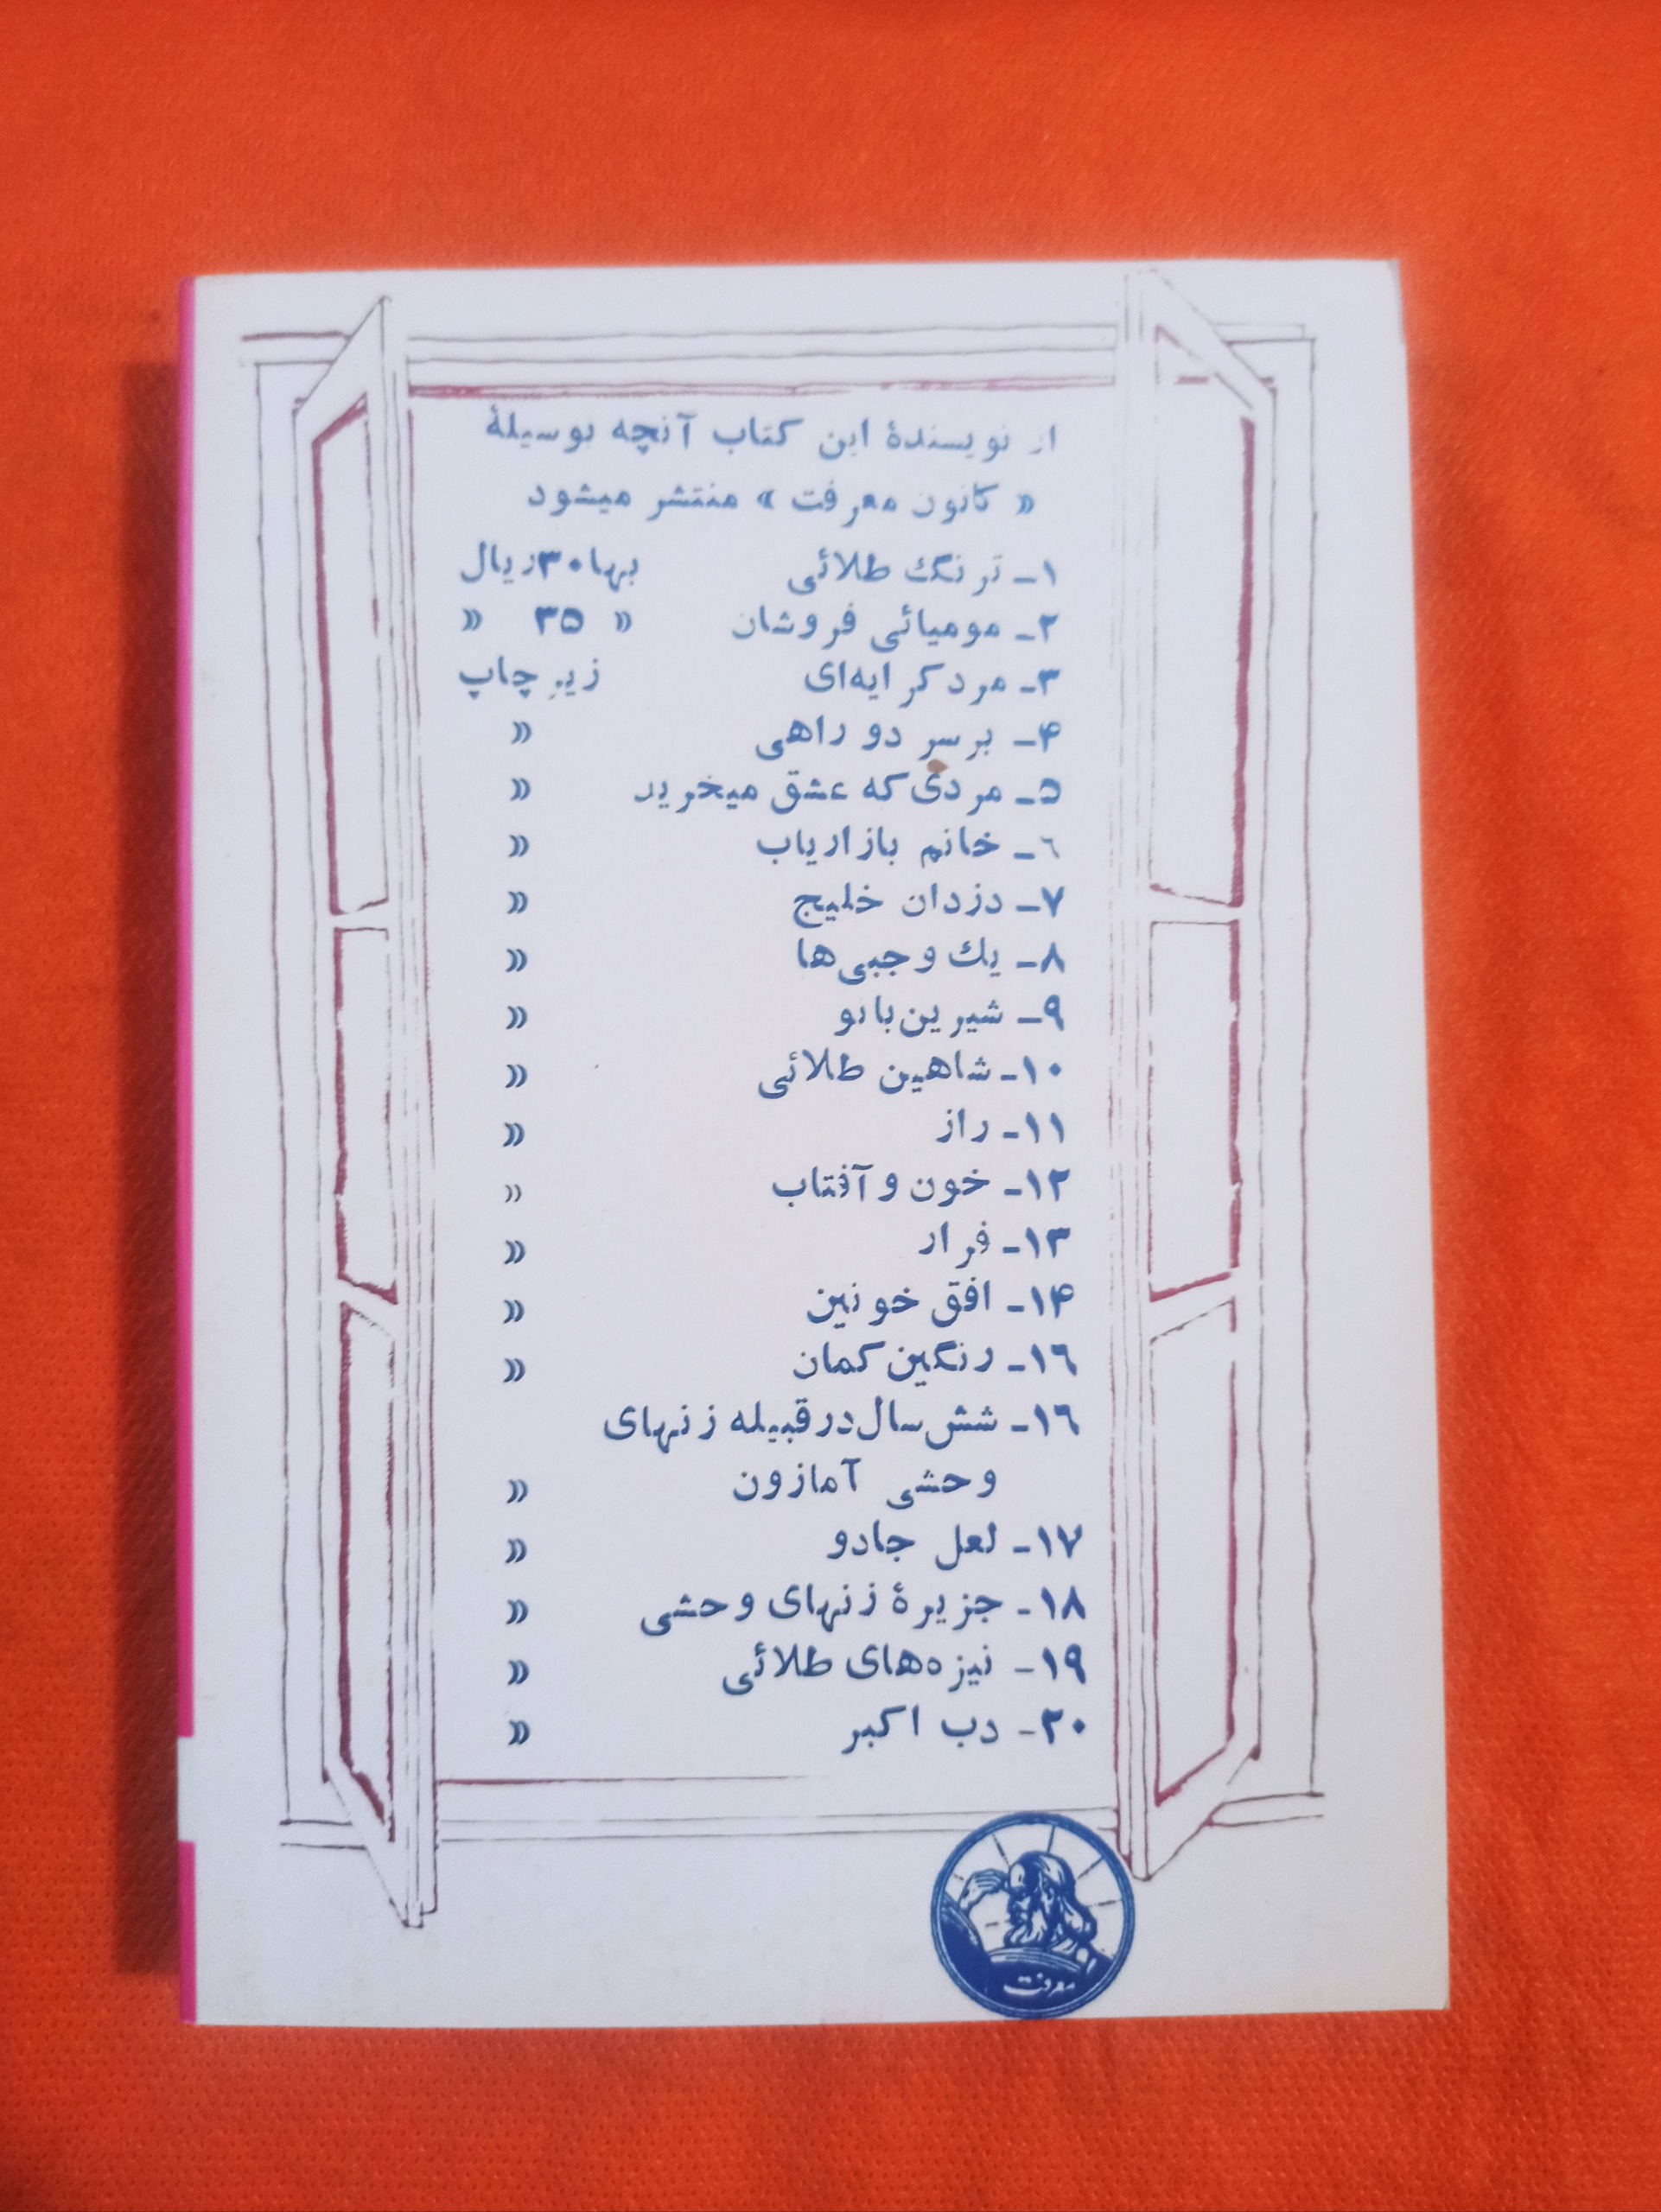 از نویسندهٔ این کتاب آنچه بوسیلهٔ
« کانون معرفت » منتشر میشود
۱ـ ترنگ طلائی بها۳۰ریال
۲ـ مومیائی فروشان « ۳۵ «
۳ـ مردکرایه‌ای زیر چاپ
۴ـ برسر دو راهی «
۵ـ مردی‌که عشق میخرید «
٦ـ خانم بازاریاب «
۷ـ دزدان خلیج «
۸ـ یك وجبی‌ها «
۹ـ شیرین‌بانو «
۱۰ـ شاهین طلائی «
۱۱ـ راز «
۱۲ـ خون و آفتاب «
۱۳ـ فرار «
۱۴ـ افق خونین «
۱٦ـ رنگین‌کمان «
۱٦ـ شش‌سال‌درقبیله زنهای
وحشی آمازون «
۱۷ـ لعل جادو «
۱۸ـ جزیرهٔ زنهای وحشی «
۱۹ـ نیزه‌های طلائی «
۲۰ـ دب اکبر «
معرفت